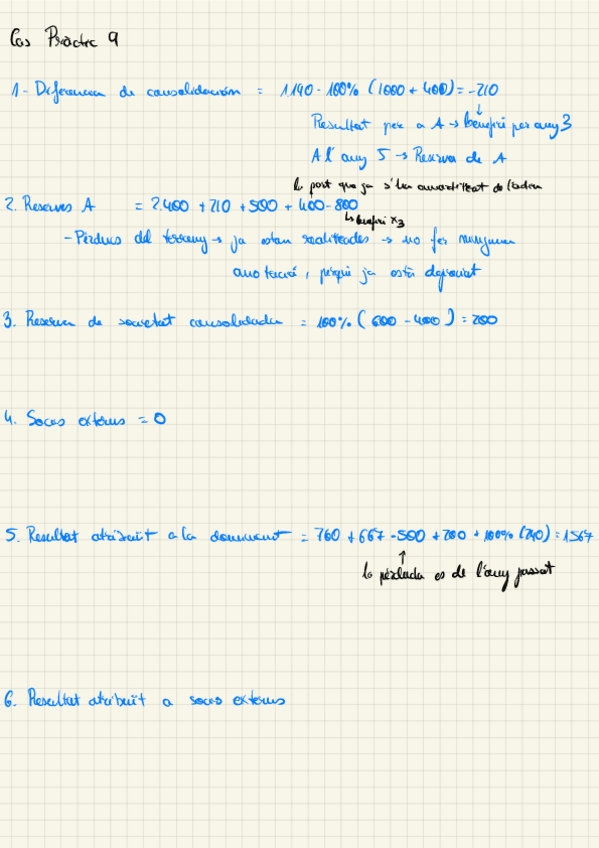 Cas Pràctic 9
1- Diferencia de consolidación = 1.190 - 100% (1000 + 400) = -210
Resultat per a A → benefici per any 3
A l'any 5 → Reserva de A
la part que ja s'ha amortitzat de l'actiu
2. Reserves A = 2.400 + 210 + 500 + 400 - 800
↳ benefici x3
- Pèrdues del terreny → ja estan realitzades → no fer ninguna
anotació, perquè ja està depreciat
3. Reserva de societat consolidada = 100% (600 - 400) = 200
4. Socis externs = 0
5. Resultat atribuït a la dominant = 760 + 667 - 500 + 700 + 100% (240) = 1567
la pèrdua es de l'any passat
6. Resultat atribuït a socis externs